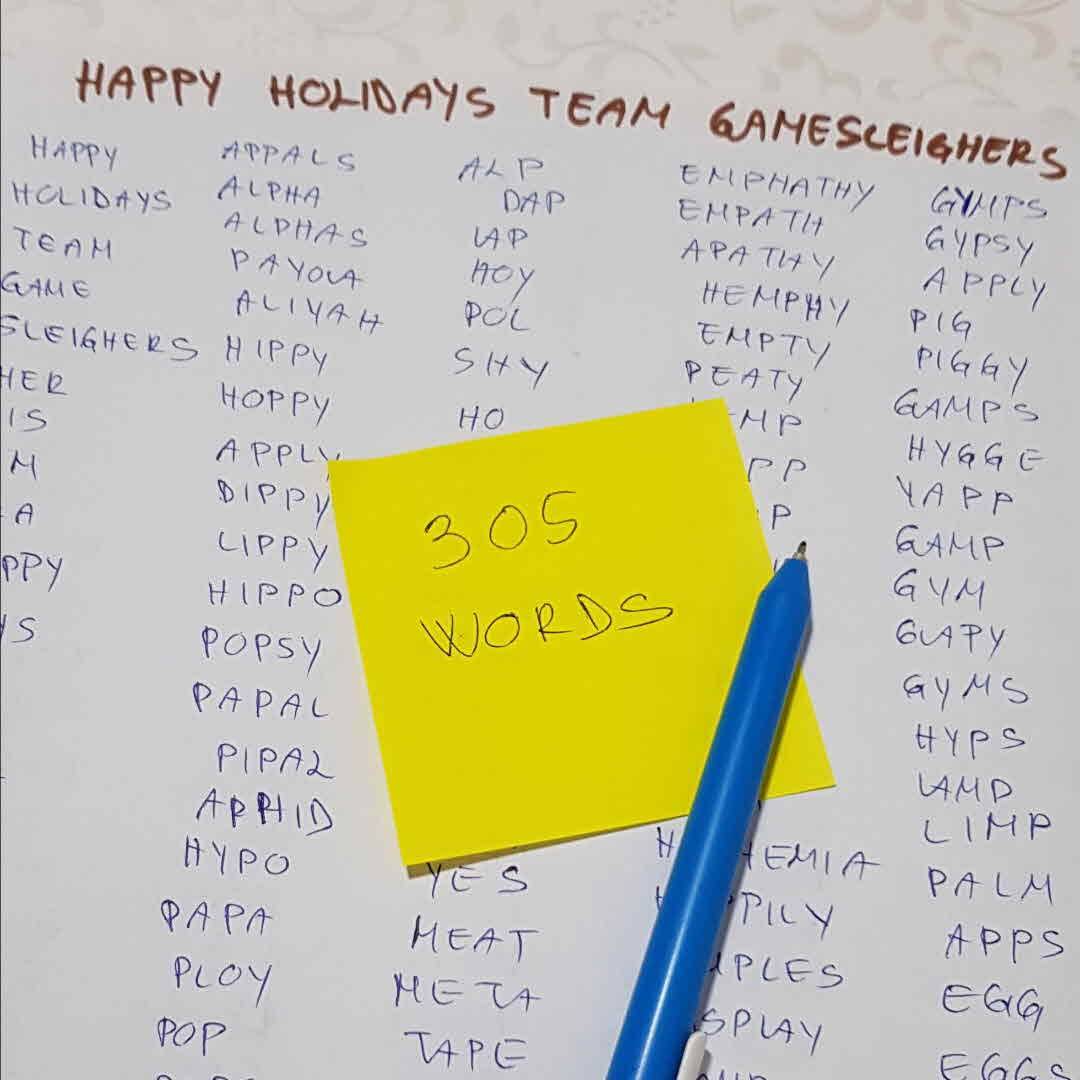 HAPPY HOLIDAYS TEAM GAMESLEIGHERS
HAPPY
HOLIDAYS
TEAM
GAME
SLEIGHERS
HER
IS
M
A
PPY
IS
APPALS
ALPHA
ALPHAS
PAYOLA
ALIYAH
HIPPY
HOPPY
APPLY
DIPPY
LIPPY
HIPPO
POPSY
PAPAL
PIPAL
APHID
HYPO
PAPA
PLOY
POP
ALP
DAP
LAP
HOY
POL
SHY
HO
305
WORDS
YES
MEAT
META
TAPE
EMPHATHY
EMPATH
APATHY
HEMPHY
EMPTY
PEATY
MP
PP
P
HEMIA
PILY
PLES
SPLAY
GYMPS
GYPSY
APPLY
PIG
PIGGY
GAMPS
HYGGE
YAPP
GAMP
GYM
GLAPY
GYMS
HYPS
LAMP
LIMP
PALM
APPS
EGG
EGGS